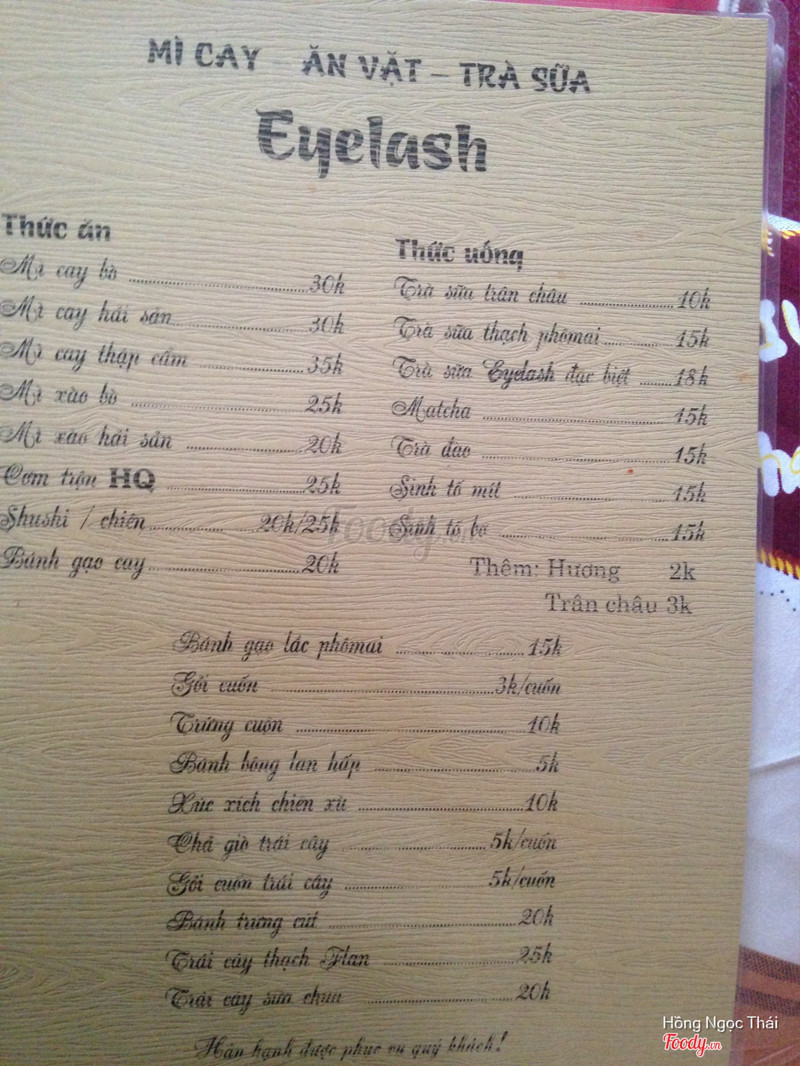 MÌ CAY – ĂN VẶT – TRÀ SỮA
Eyelash
Thức ăn
Mì cay bò 30k
Mì cay hải sản 30k
Mì cay thập cẩm 35k
Mì xào bò 25k
Mì xào hải sản 20k
Cơm trộn HQ 25k
Shushi / chiên 20k/25k
Bánh gạo cay 20k
Thức uống
Trà sữa trân châu 10k
Trà sữa thạch phômai 15k
Trà sữa Eyelash đặc biệt 18k
Matcha 15k
Trà đào 15k
Sinh tố mít 15k
Sinh tố bơ 15k
Thêm: Hương 2k
Trân châu 3k
Bánh gạo lắc phômai 15k
Gỏi cuốn 3k/cuốn
Trứng cuộn 10k
Bánh bông lan hấp 5k
Xúc xích chiên xù 10k
Chả giò trái cây 5k/cuốn
Gỏi cuốn trái cây 5k/cuốn
Bánh trứng cút 20k
Trái cây thạch Flan 25k
Trái cây sữa chua 20k
Hân hạnh được phục vụ quý khách!
Foody.vn
Hồng Ngọc Thái
Foody.vn